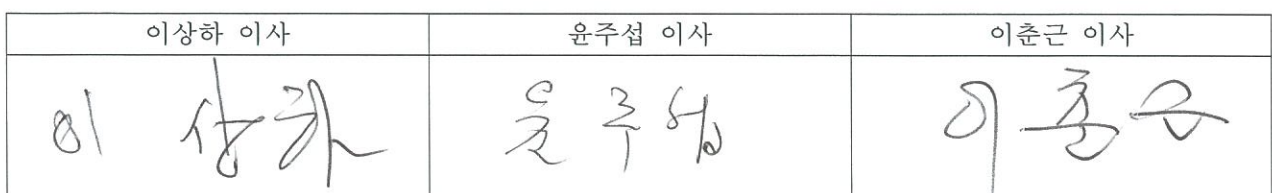 이상하 이사 윤주섭 이사 이춘근 이사
이 상하 윤주섭 이춘근